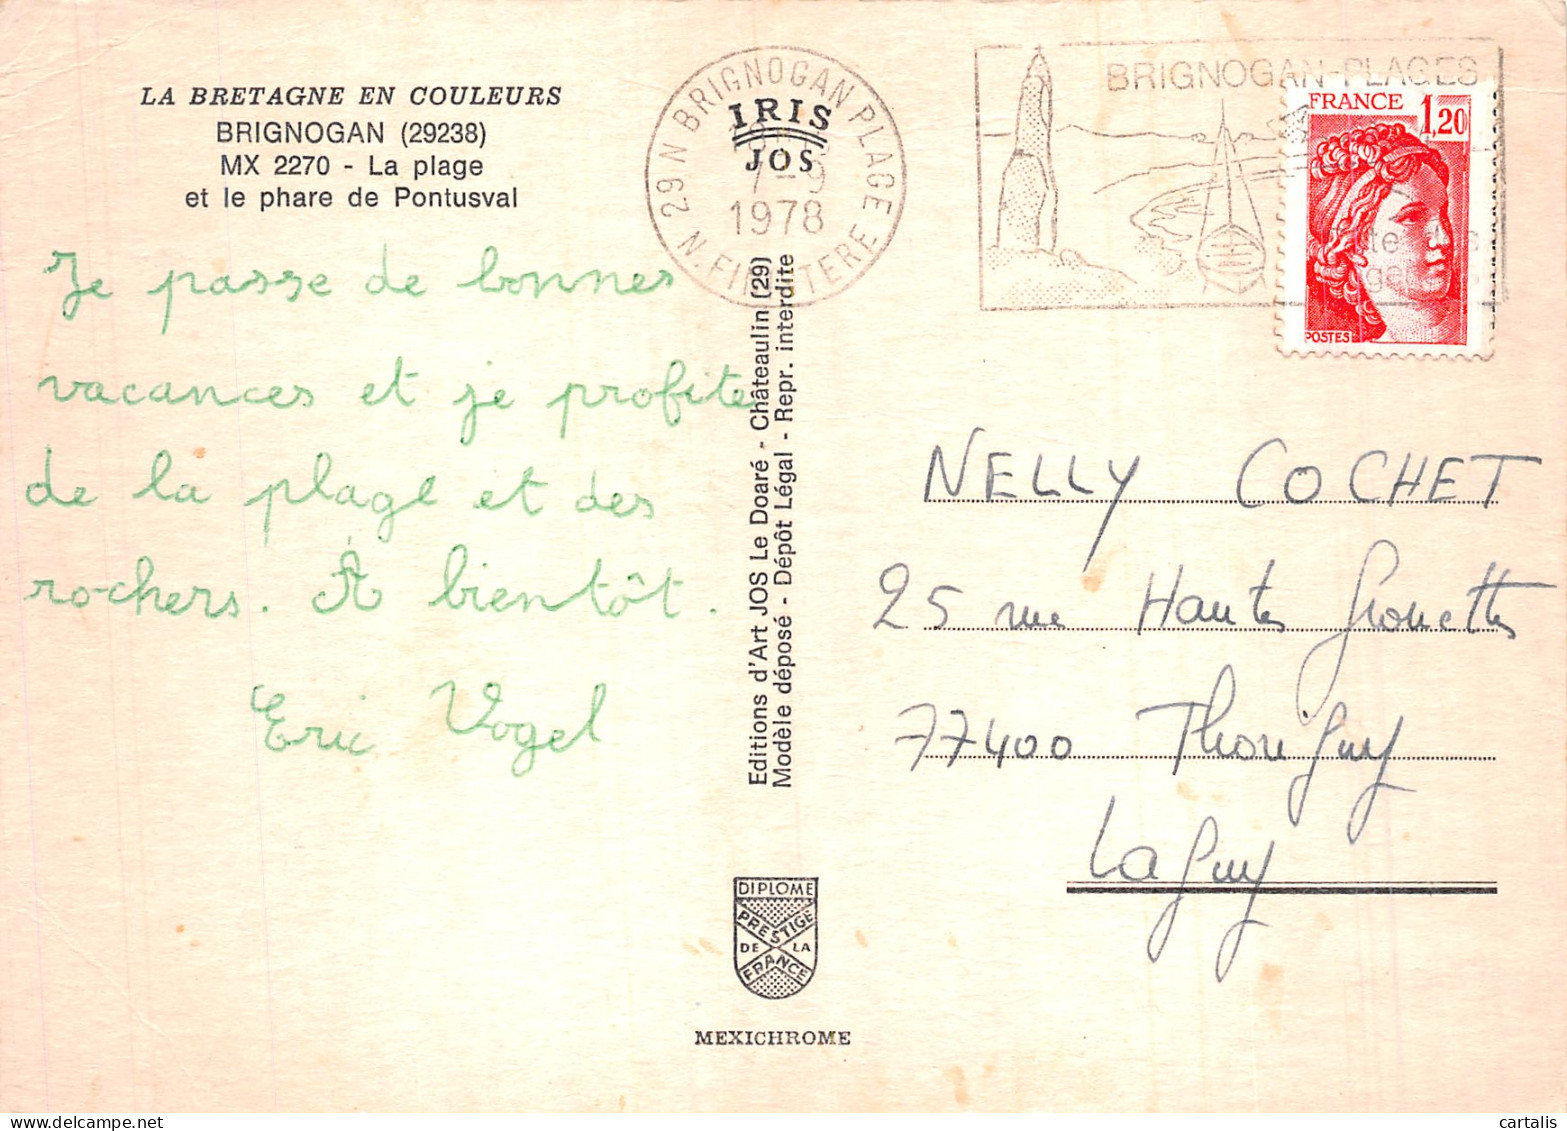 LA BRETAGNE EN COULEURS
BRIGNOGAN (29238)
MX 2270 - La plage
et le phare de Pontusval
Je passe de bonnes
vacances et je profite
de la plage et des
rochers. A bientôt.
Eric Vogel
29 N BRIGNOGAN PLAGE
N. FINISTERE
7-9
1978
IRIS
JOS
Editions d'Art JOS Le Doaré - Châteaulin (29)
Modèle déposé - Dépôt Légal - Repr. interdite
DIPLOME
PRESTIGE
DE LA
FRANCE
MEXICHROME
BRIGNOGAN-PLAGES
FRANCE
1,20
POSTES
NELLY COCHET
25 rue Hautes Grouettes
77400 Thorigny
Lagny
cartalis